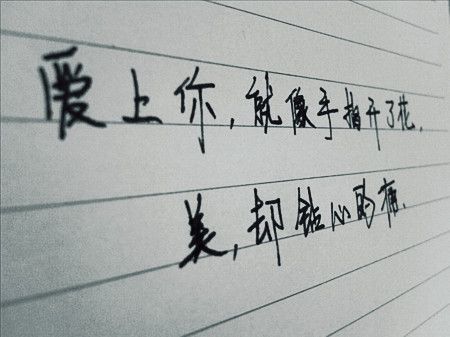 爱上你,就像手指开了花,
美,却钻心的痛.